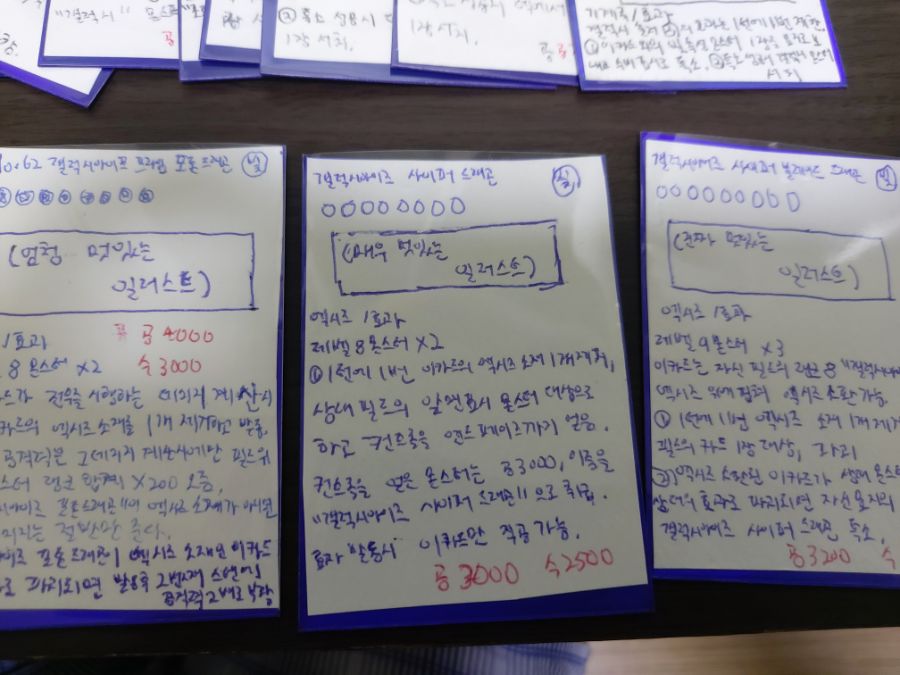 "갤럭시"
1장 서치.
1장 서치.
기계족/효과
서치
No.62 갤럭시아이즈 프라임 포톤 드래곤 빛
(엄청 멋있는
일러스트)
/효과 공4000
8 몬스터 ×2 수3000
카드가 전투를 시행하는 데미지 계산시
카드의 엑시즈 소재를 1개 제거하고 발동.
공격력은 그 데미지 계산시에만 필드위
몬스터 랭크 합계 ×200 오름.
포톤 드래곤"이 엑시즈 소재가 아니면
데미지는 절반만 준다.
포톤드래곤이 엑시즈 소재인 이카드
로 파괴되면 발동후 2번째 스탠바이
공격력 2배로 부활
갤럭시아이즈 사이퍼 드래곤 빛
OOOOOOOO
(매우 멋있는
일러스트)
엑시즈 /효과
레벨 8 몬스터 ×2
① 1턴에 1번 이카드의 엑시즈 소재 1개 제거,
상대 필드의 앞면표시 몬스터 대상으로
하고 컨트롤을 엔드페이즈까지 얻음.
컨트롤을 얻은 몬스터는 공3000, 이름을
"갤럭시아이즈 사이퍼 드래곤"으로 취급.
효과 발동시 이카드만 직공가능.
공3000 수2500
갤럭시아이즈 사이퍼 블레이드 드래곤 빛
OOOOOOOOO
(진짜 멋있는
일러스트)
엑시즈 /효과
레벨 9 몬스터 ×3
이카드는 자신 필드의 랭크 8 "갤럭시아이
엑시즈 위에 겹쳐 엑시즈 소환 가능.
① 1턴에 1번 엑시즈 소재 1개 제거
필드의 카드 1장 대상, 파괴
② 엑시즈 소환된 이카드가 상대 몬스
상대의 효과로 파괴되면 자신 묘지의
갤럭시아이즈 사이퍼 드래곤 특소.
공3200 수